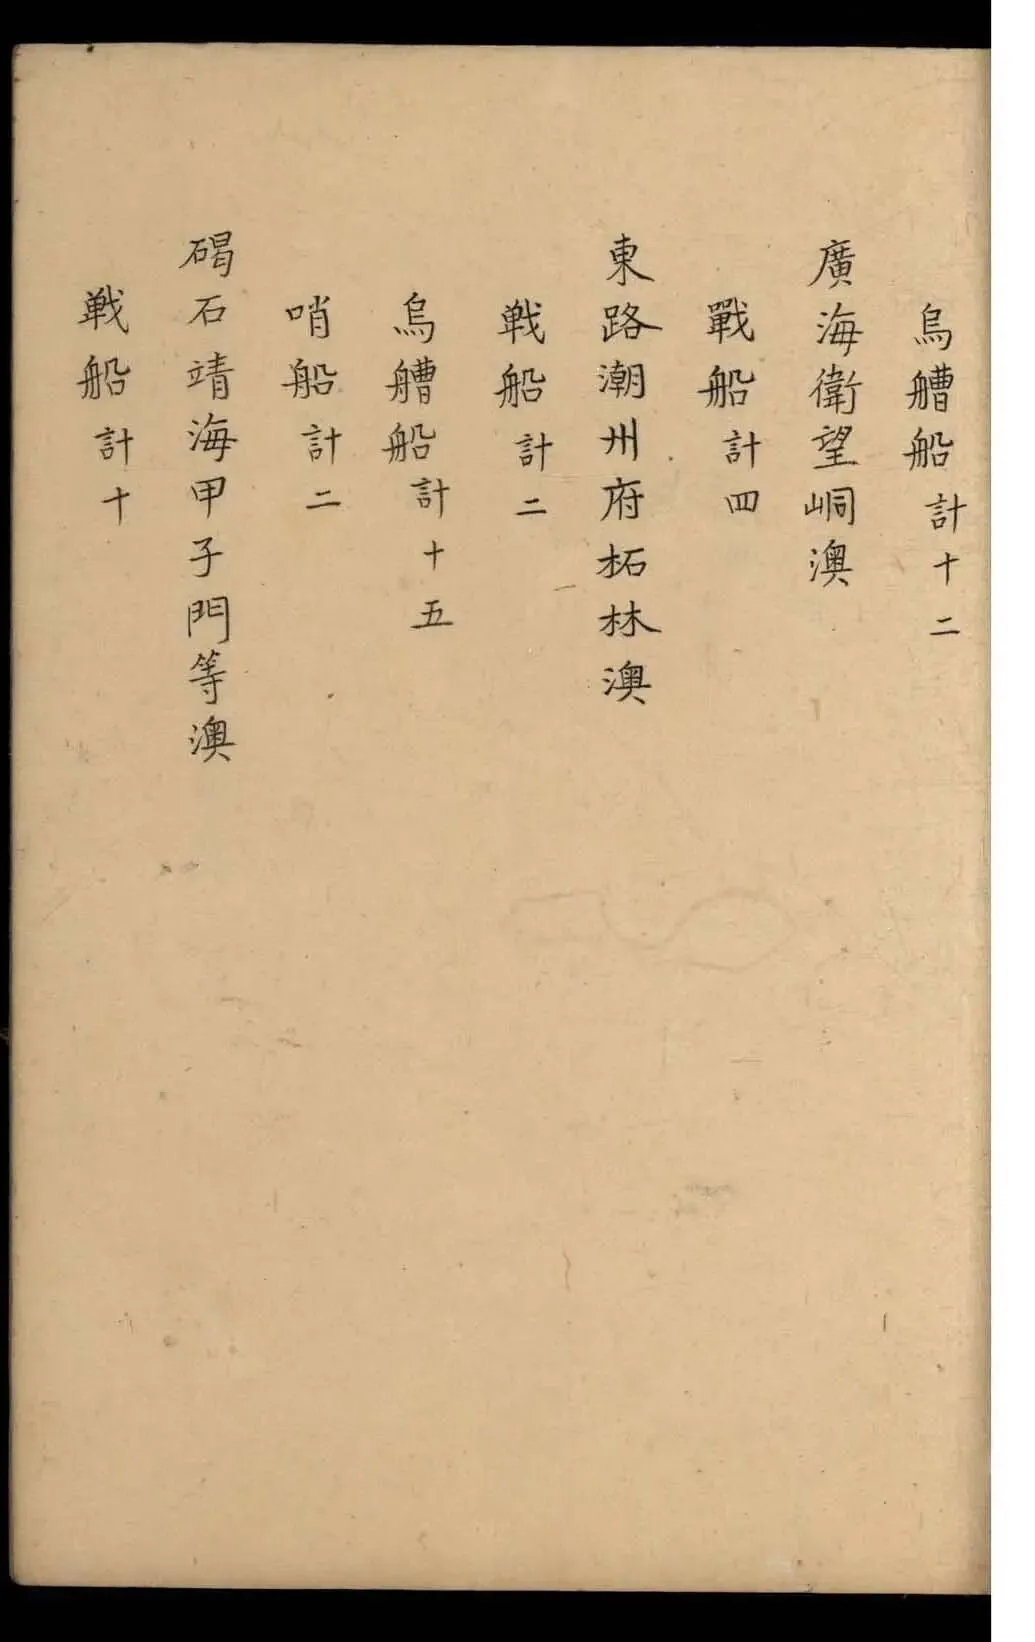 烏艚船計十二
廣海衛望峒澳
戰船計四
東路潮州府柘林澳
戦船計二
烏艚船計十五
哨船計二
碣石靖海甲子門等澳
戦船計十